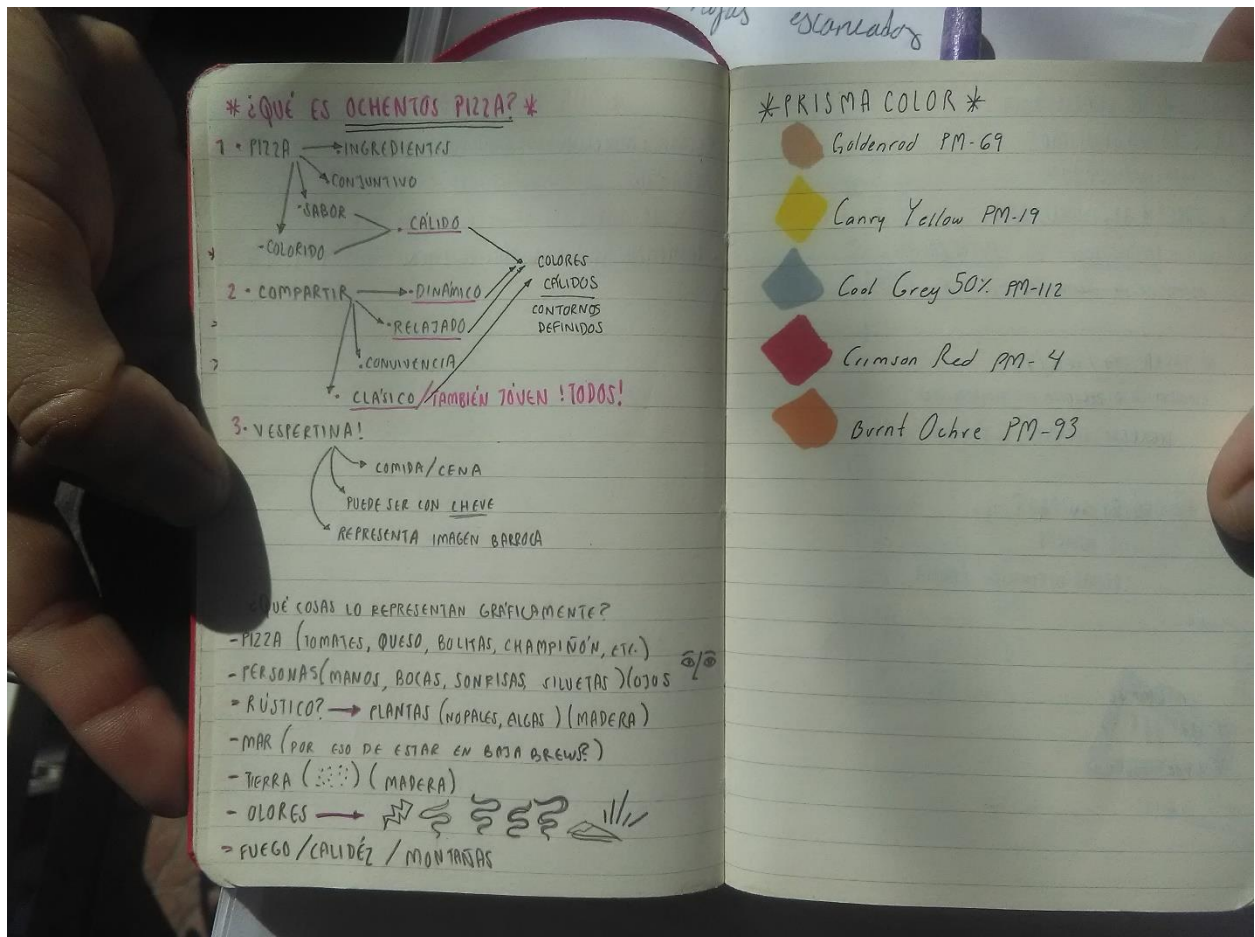 hojas escaneadas
* ¿QUÉ ES OCHENTOS PIZZA? *
1 • PIZZA → INGREDIENTES
CONJUNTIVO
• SABOR
• CÁLIDO
- COLORIDO
COLORES
CÁLIDOS
CONTORNOS
DEFINIDOS
2 • COMPARTIR → • DINÁMICO
• RELAJADO
• CONVIVENCIA
• CLÁSICO / TAMBIÉN JÓVEN ! TODOS!
3 • VESPERTINA!
COMIDA/CENA
PUEDE SER CON CHEVE
REPRESENTA IMAGÉN BARROCA
¿QUÉ COSAS LO REPRESENTAN GRÁFICAMENTE?
- PIZZA (TOMATES, QUESO, BOLITAS, CHAMPIÑÓN, ETC.)
- PERSONAS (MANOS, BOCAS, SONRISAS, SILUETAS) (OJOS
- RÚSTICO? → PLANTAS (NOPALES, ALGAS) (MADERA)
- MAR (POR ESO DE ESTAR EN BAJA BREWS?)
- TIERRA ( ) (MADERA)
- OLORES →
- FUEGO / CALIDÉZ / MONTAÑAS
* PRISMA COLOR *
Goldenrod PM-69
Canry Yellow PM-19
Cool Grey 50% PM-112
Crimson Red PM-4
Burnt Ochre PM-93